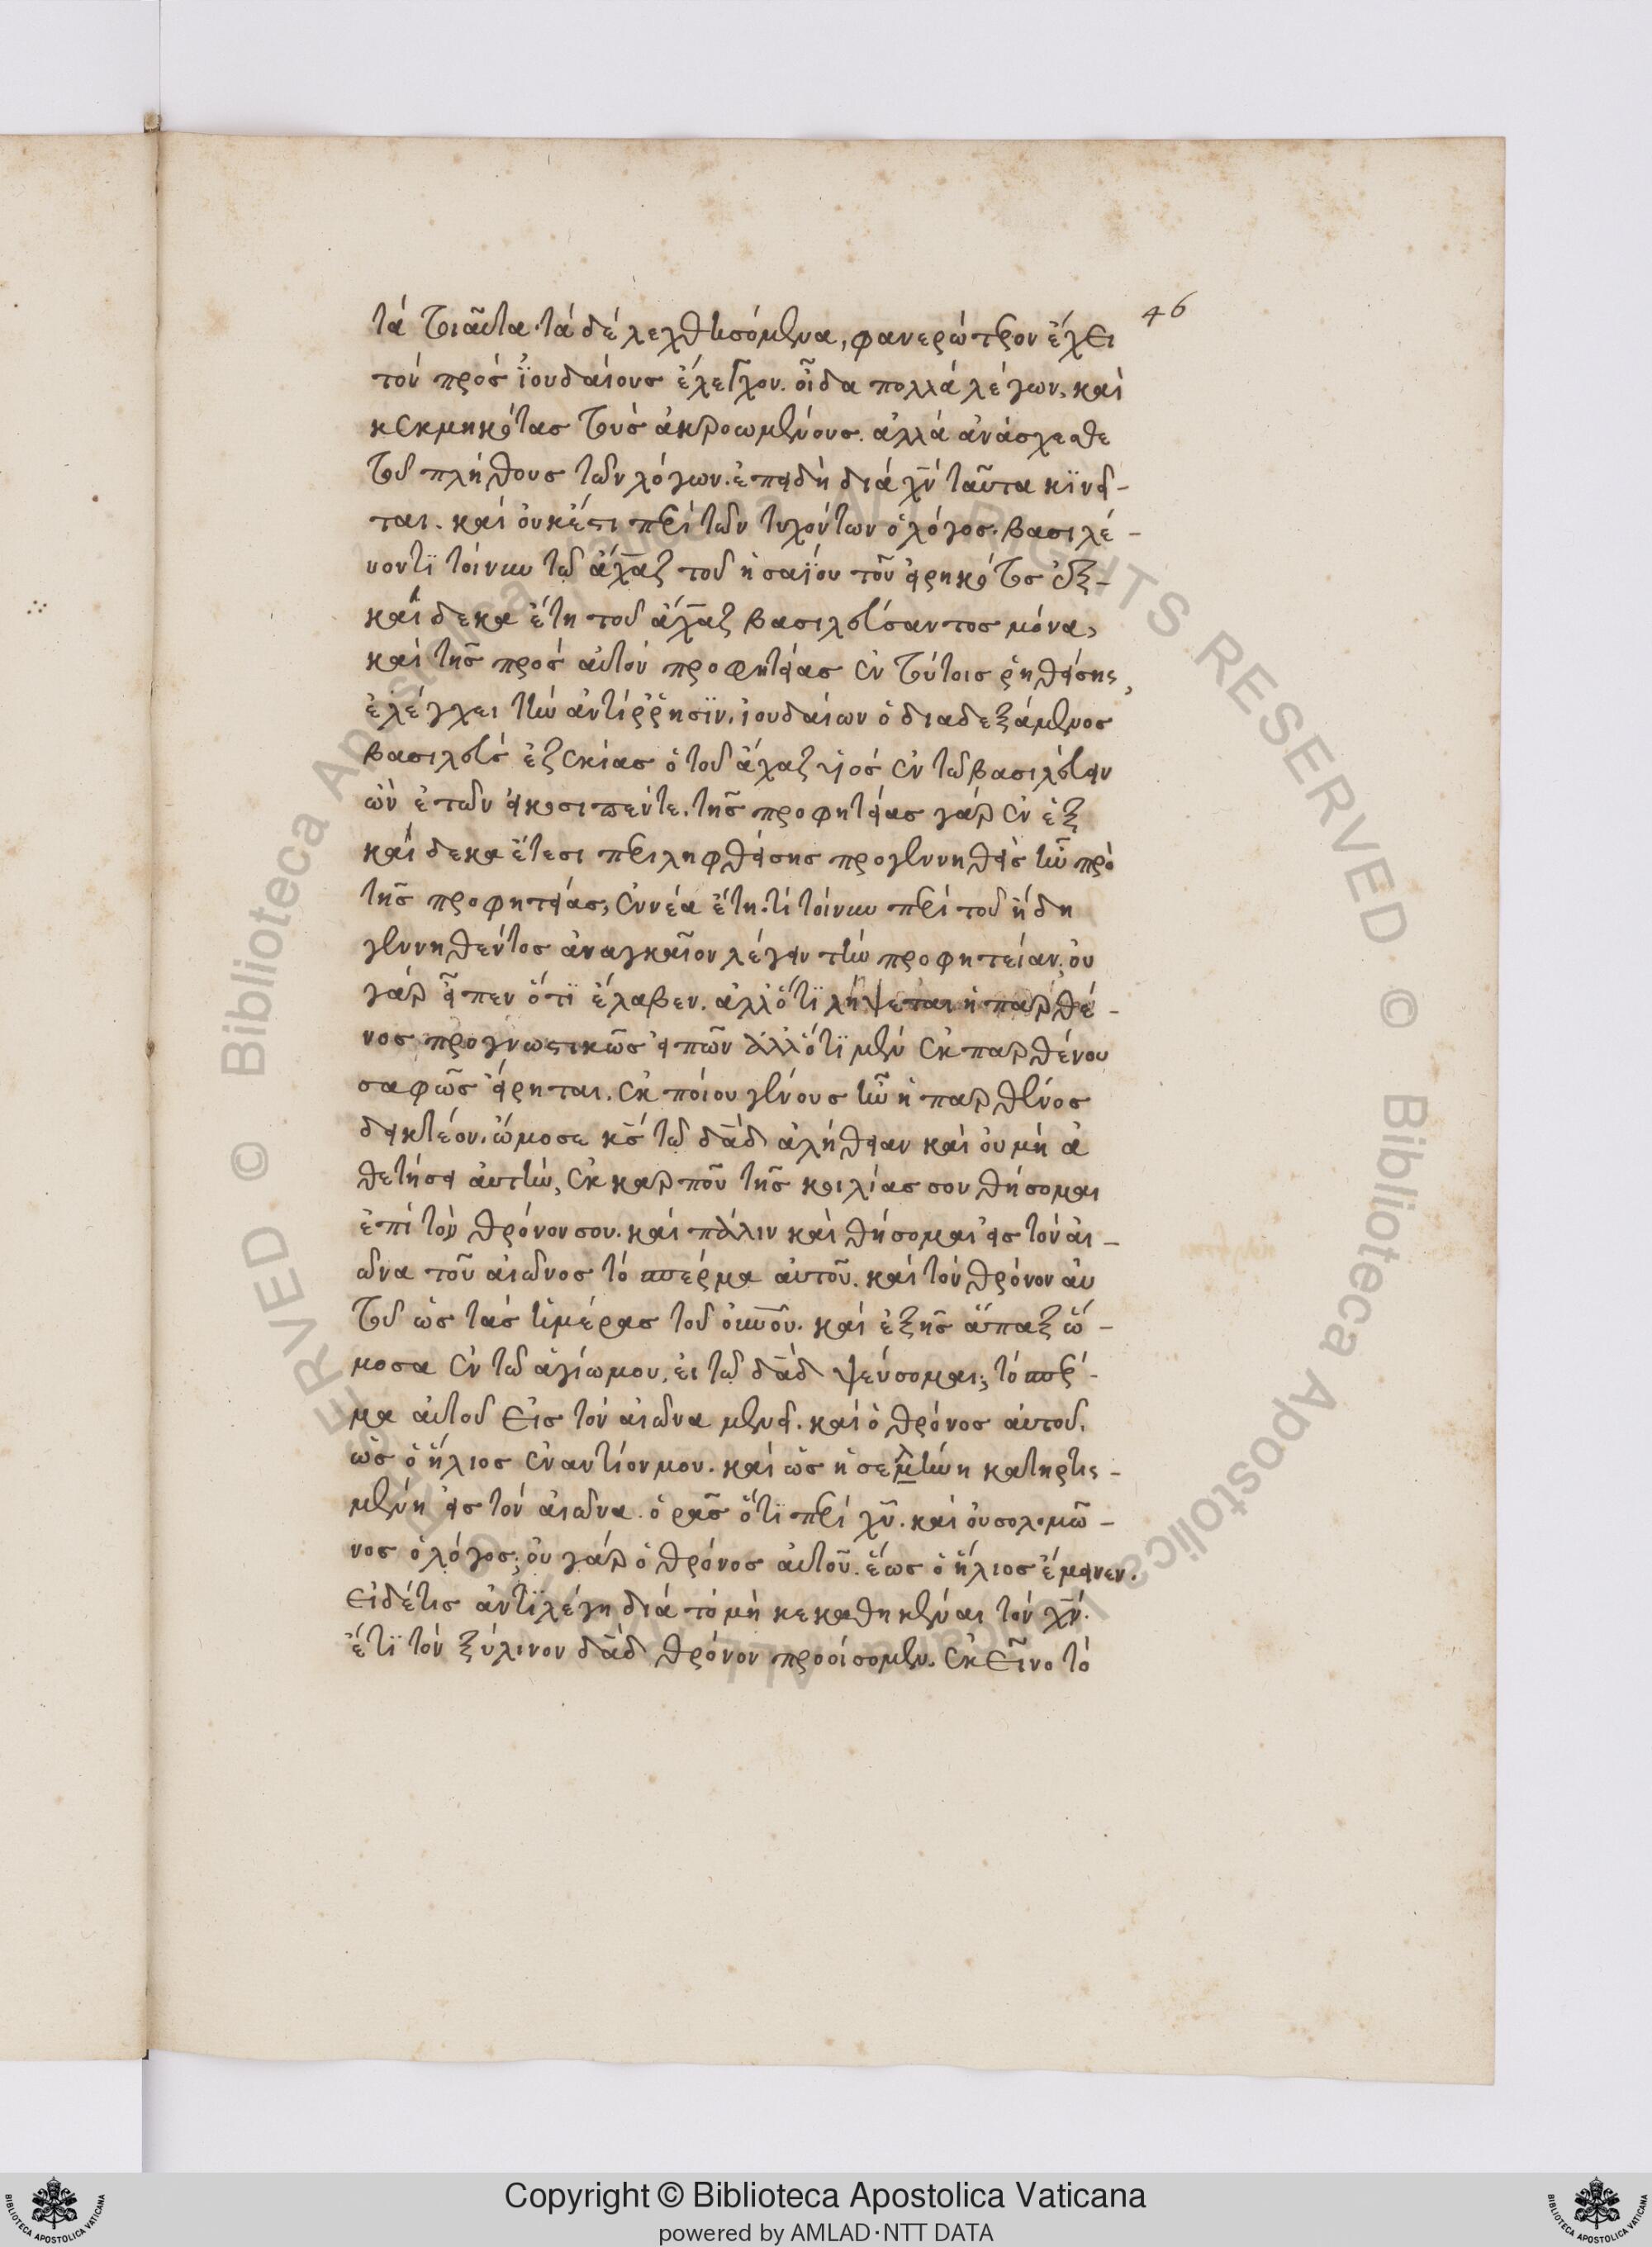 46
τά τοιαῦτα· τά δέ λεχθησόμενα, φανερώτερον ἔχει
τόν πρόσ ἰουδαίουσ ἔλεγχον. οἶδα πολλά λέγων, καί
κεκμηκότασ τούσ ἀκροωμένουσ. ἀλλά ἀνάσχεσθε
τοῦ πλήθουσ τῶν λόγων. ἐπειδή διά χ̅ν̅ ταῦτα κϊνεῖ-
ται. καί οὐκέτι περί τῶν τυχόντων ὁ λόγοσ. βασιλέ-
υοντϊ τοίνυν τῶ ἄχαζ τοῦ ἡσαΐου τοῦ εἰρηκότοσ ἑξ-
καί δεκα ἔτη τοῦ ἄχαζ βασιλεύσαντοσ μόνα,
καί τῆσ πρόσ αὐτόν προφητείασ ἐν τούτοισ ῥηθείσησ,
ἐλέγχει τήν ἀντίῤῥησϊν, ἰουδαίων ὁ διαδεξάμενοσ
βασιλεύσ ἐζεκίασ ὁ τοῦ ἄχαζ υἱόσ ἐν τῶ βασιλεύειν
ὤν ἐτῶν εἰκοσιπέντε. τῆσ προφητείασ γάρ ἐν ἑξ
καί δεκα ἔτεσι περιληφθείσησ προγεννηθείσ ἦν πρό
τῆσ προφητείασ, ἐννέα ἔτη. τί τοίνυν περί τοῦ ἤδη
γεννηθέντοσ ἀναγκαῖον λέγειν τήν προφητείαν; οὐ
γάρ εἶπεν ὅτϊ ἔλαβεν. ἀλλ' ὅτϊ λήψεται ἡ παρθέ-
νοσ προγνωστικῶσ εἰπῶν ἀλλ' ὅτϊ μέν ἐκ παρθένου
σαφῶσ εἴρηται. ἐκ ποίου γένουσ ἦν ἡ παρθένοσ
δεικτέον. ὤμοσε κ̅σ̅ τῶ δ̅α̅δ̅ ἀλήθειαν καί οὐ μή ἀ
θετήσει αὐτήν, ἐκ καρποῦ τῆσ κοιλίασ σου θήσομαι
ἐπί τόν θρόνον σου. καί πάλιν καί θήσομαι εἰσ τόν αἰ-
ῶνα τοῦ αἰῶνοσ τό σπέρμα αὐτοῦ. καί τόν θρόνον αὐ
τοῦ ὡσ τάσ ἡμέρασ τοῦ ο̅υ̅ν̅ο̅υ̅. καί ἑξῆσ ἅπαξ ὤ-
μοσα ἐν τῶ ἁγίω μου, εἰ τῶ δ̅α̅δ̅ ψεύσομαι; τό σπέρ-
μα αὐτοῦ εἰσ τόν αἰῶνα μενεῖ. καί ὁ θρόνοσ αὐτοῦ,
ὡσ ὁ ἥλιοσ ἐναντίον μου. καί ὡσ ἡ σελήνη κατηρτισ-
μένη εἰσ τόν αἰῶνα. ὁρᾶσ ὅτϊ περί χ̅υ̅. καί οὐ σολομῶ-
νοσ ὁ λόγοσ; οὐ γάρ ὁ θρόνοσ αὐτοῦ. ἕωσ ὁ ἥλιοσ ἔμεινεν.
εἰ δέ τισ ἀντϊλέγη διά τό μή κεκαθηκέναι τόν χ̅ν̅.
ἐτϊ τόν ξύλινον δ̅α̅δ̅ θρόνον προοίσομεν. ἐκεῖνο τό